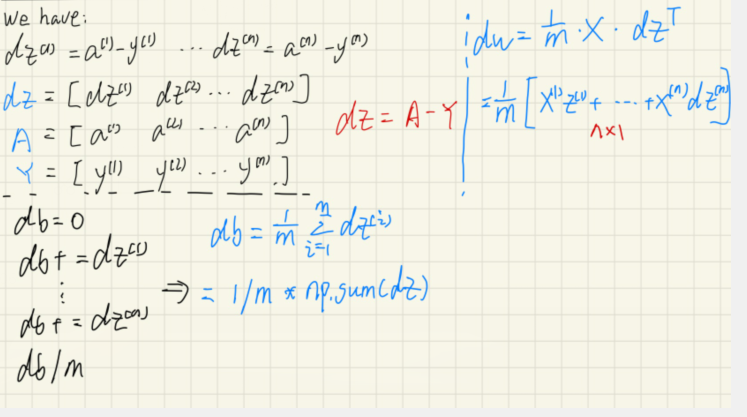 We have:
dz⁽¹⁾ = a⁽¹⁾ - y⁽¹⁾ ... dz⁽ᵐ⁾ = a⁽ᵐ⁾ - y⁽ᵐ⁾
dz = [dz⁽¹⁾ dz⁽²⁾ ... dz⁽ᵐ⁾]
A = [a⁽¹⁾ a⁽²⁾ ... a⁽ᵐ⁾]
Y = [y⁽¹⁾ y⁽²⁾ ... y⁽ᵐ⁾]
dz = A - Y
dw = 1/m · X · dzᵀ
= 1/m [x⁽¹⁾z⁽¹⁾ + ... + x⁽ᵐ⁾dz⁽ᵐ⁾]
n×1
db = 0
db += dz⁽¹⁾
⋮
db += dz⁽ᵐ⁾
db/m
db = 1/m Σᵢ₌₁ᵐ dz⁽ⁱ⁾
⇒ = 1/m * np.sum(dz)